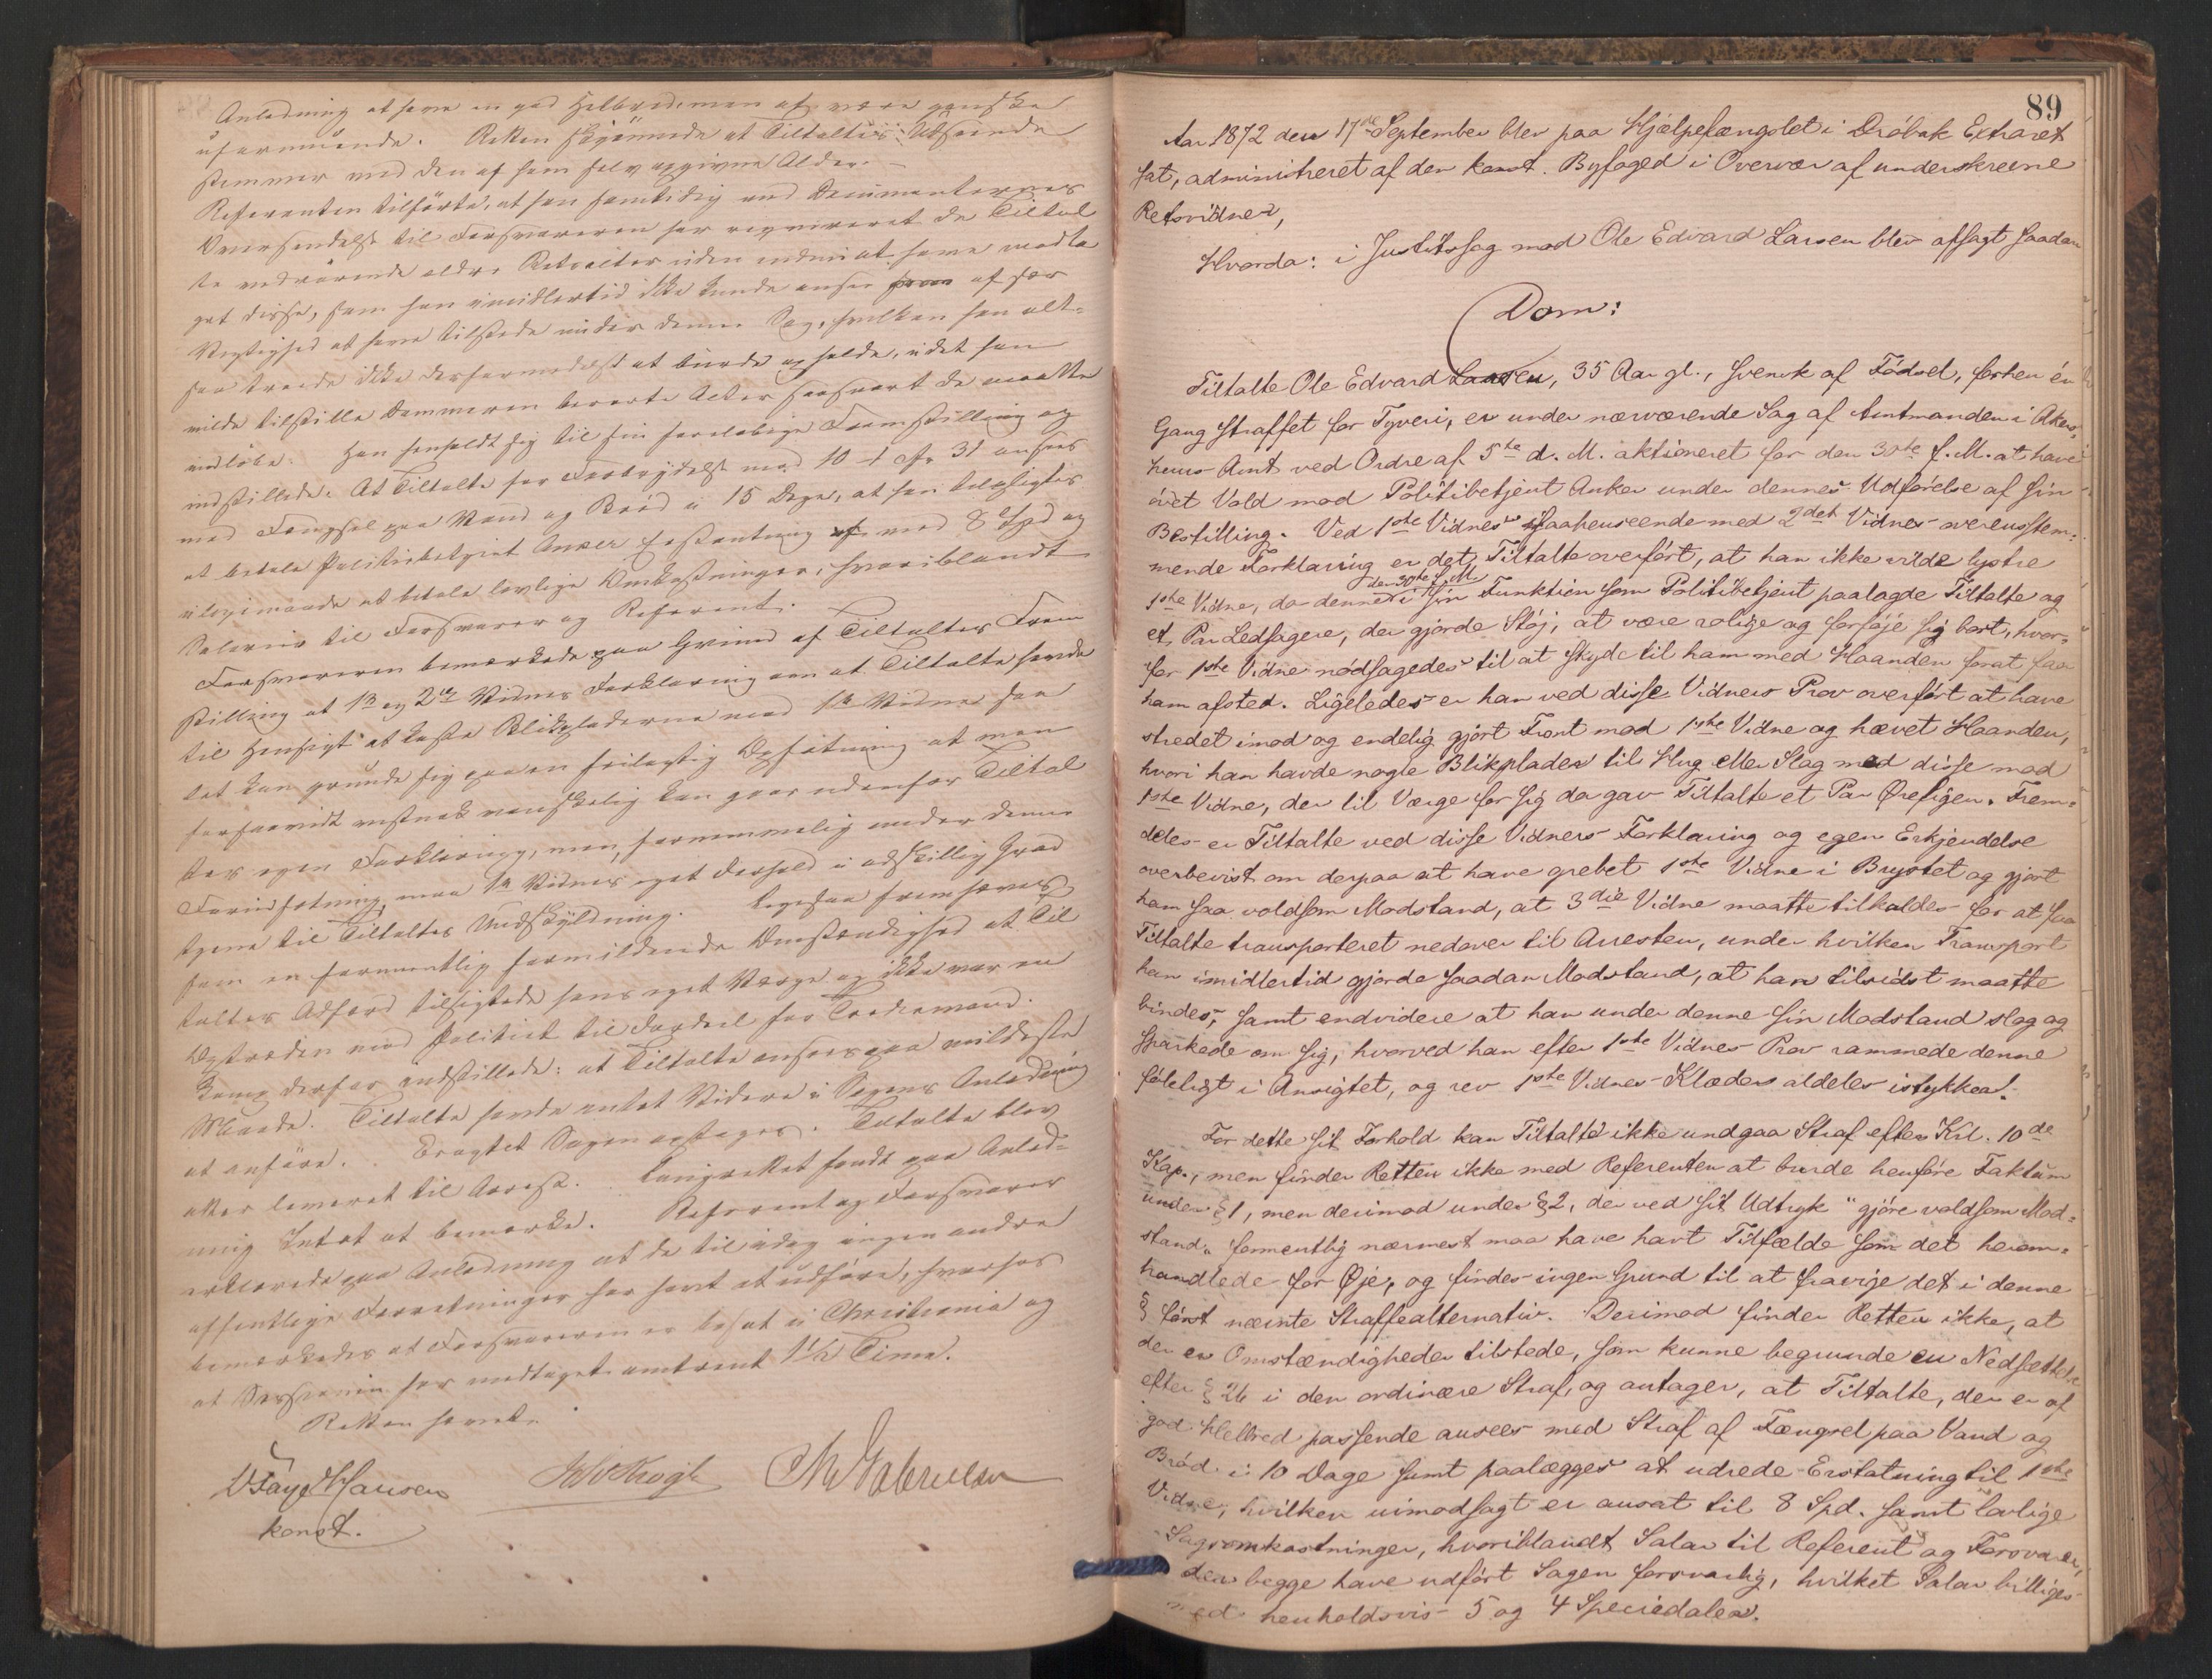 Anledning at have en god Helbred, men at være ganske
uformuende. Retten skjønnede at Tiltaltes Udseende
stemmer med den af ham selv opgivne Alder. –
Referenten tilførte, at han samtidig med Documenternes
Oversendelse til Forsvareren har reqvireret de Tiltal
te vedrørende ældre Retsacter uden endnu at have modta
get disse, som han imidlertid ikke kunde anse af stor
Vigtighed at have tilstede under denne Sag, hvilken han alt-
saa troede ikke desformedelst at burde opholde, idet han
vilde tilstille Dommeren berørte Acter saasnart de maatte
indløbe. Han henholdt sig til sin foreløbige Fremstilling og
indstillede: At Tiltalte for Forbrydelse mod 10 – 1 cfr 31 ansees
med Fængsel paa Vand og Brød i 15 Dage, at han tilpligtes
at betale Politibetjent Anker Erstatning med 8 Spd og
iligemaade at betale lovlige Omkostninger, hvoriblandt
Salarier til Forsvarer og Referent.
Forsvareren bemærkede paa Grund af Tiltaltes Frem
stilling at 1ste og 2det Vidnes Forklaring om at Tiltalte havde
til Hensigt at kaste Blikpladerne mod 1ste Vidne saa
let kan grunde sig paa en feilagtig Opfatning at man
forsaavidt vistnok vanskelig kan gaae udenfor Tiltal
tes egen Forklaring, men, fornemmelig under denne
Forudsætning, maa 1ste Vidnes eget Forhold i adskillig Grad
tjene til Tiltaltes Undskyldning. Ligesaa fremhæves
som en formentlig formildende Omstændighed at Til
taltes Adfærd tilsigtede hans eget Værge og ikke var en
Optræden mod Politiet til Fordel for Tredjemand.
Comp. derfor indstillede: at Tiltalte ansees paa mildeste
Maade. Tiltalte havde intet Videre i Sagens Anledning
at anføre. Eragtet Sagen optages. Tiltalte blev
atter leveret til Arrest. Laugrettet fandt paa Anled-
ning Intet at bemærke. Referent og Forsvarer
erklærede paa Anledning at de til idag ingen andre
offentlige Forretninger har havt at udføre, hvorhos
bemærkedes at Forsvareren er bosat i Christiania og
at Sessionen har medtaget omtrent 1½ Time.
Retten hævet.
Faye Hansen
konst.
Krogh
Chr Gabrielsen
89
Aar 1872 den 17de September blev paa Hjælpefængslet i Drøbak Extraret
sat, administreret af den konst. Byfoged i Overvær af underskrevne
Retsvidner,
Hvorda: i Justitssag mod Ole Edvard Larsen blev afsagt saadan
Dom:
Tiltalte Ole Edvard Larsen, 35 Aar gl., svensk af Fødsel, forhen én
Gang straffet for Tyveri, er under nærværende Sag af Amtmanden i Akers-
huus Amt ved Ordre af 5te d. M. aktioneret for den 30te f. M. at have
øvet Vold mod Politibetjent Anker under dennes Udførelse af sin
Bestilling. Ved 1ste Vidnes i saahenseende med 2det Vidnes overensstem-
mende Forklaring er det Tiltalte overført, at han ikke vilde lystre
1ste Vidne, da denne den 30te f. M. i sin Funktion som Politibetjent paalagde Tiltalte og
et Par Ledsagere, der gjorde Støj, at være rolige og forføje sig bort, hvor-
for 1ste Vidne nødsagedes til at skyde til ham med Haanden forat faa
ham afsted. Ligeledes er han ved disse Vidners Prov overført at have
stredet imod og endelig gjort Front mod 1ste Vidne og hævet Haanden,
hvori han havde nogle Blikplader til Hug eller Slag med disse mod
1ste Vidne, der til Værge for sig da gav Tiltalte et Par Ørefigen. Frem-
deles er Tiltalte ved disse Vidners Forklaring og egen Erkjendelse
overbevist om derpaa at have grebet 1ste Vidne i Brystet og gjort
ham saa voldsom Modstand, at 3die Vidne maatte tilkaldes for at faa
Tiltalte transporteret nedover til Arresten, under hvilken Transport
han imidlertid gjorde saadan Modstand, at han tilsidst maatte
bindes, samt endvidere at han under denne sin Modstand slog og
sparkede om sig, hvorved han efter 1ste Vidnes Prov rammede denne
føleligt i Ansigtet, og rev 1ste Vidnes Klæder aldeles istykker.
For dette sit Forhold kan Tiltalte ikke undgaa Straf efter Krl. 10de
Kap., men finder Retten ikke med Referenten at burde henføre Faktum
under § 1, men derimod under § 2, der ved sit Udtryk "gjøre voldsom Mod-
stand" formentlig nærmest maa have havt Tilfælde som det herom-
handlede for Øje, og findes ingen Grund til at fravige det i denne
§ først nævnte Straffealternativ. Derimod finder Retten ikke, at
der er Omstændigheder tilstede, som kunne begrunde en Nedsættelse
efter § 26 i den ordinære Straf, og antager, at Tiltalte, der er af
god Helbred passende ansees med Straf af Fængsel paa Vand og
Brød i 10 Dage samt paalægges at udrede Erstatning til 1ste
Vidne, hvilken uimodsagt er ansat til 8 Spd. samt lovlige
Sagsomkostninger, hvoriblandt Salar til Referent og Forsvarer,
der begge have udført Sagen forsvarlig, hvilket Salar billiges
med henholdsvis 5 og 4 Speciedaler.